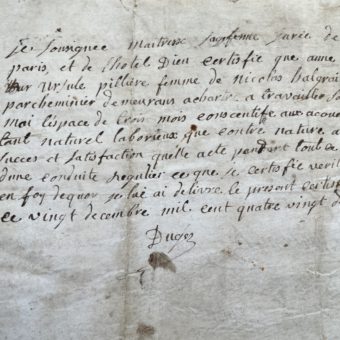 Je Soussignée Maitresse Sagefemme Jurée de
paris, et de l'hotel Dieu Certifie que anne
Ursule pillère femme de nicolas
parcheminier demeurans achartre a travailler
moi l'espace de trois mois consecutifs aux acou
tant naturel laborieux que contre nature a
succes et satisfaction quelle acté pendant tout ce
d'une conduite regulier ce que je certifie veri
en foy dequoy je lui ai delivré le present Certif
ce vingt decembre mil cent quatre vingt
Duges